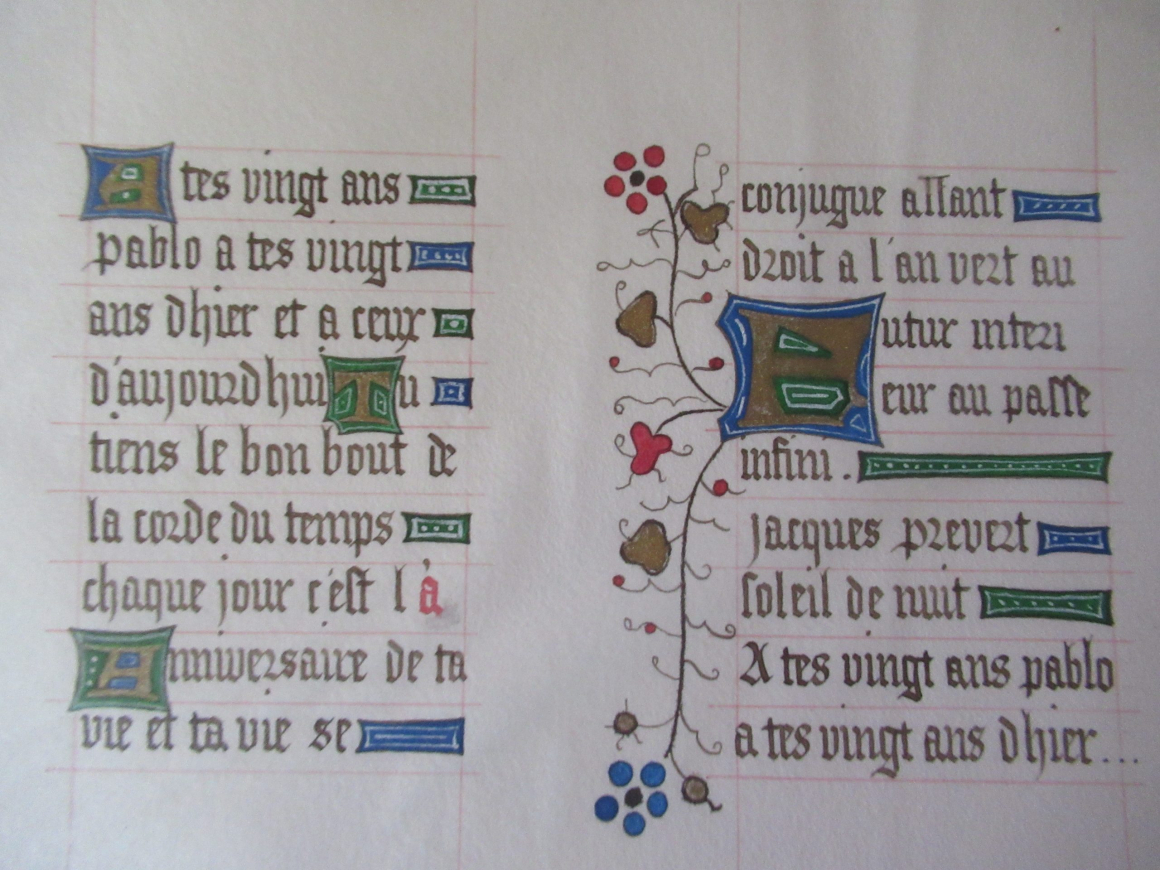 A tes vingt ans
pablo a tes vingt
ans dhier et a ceux
d'aujourdhui Tu
tiens le bon bout de
la corde du temps
chaque jour c'est l à
Anniversaire de ta
vie et ta vie se
conjugue allant
droit a l'an vert au
Futur interi
eur au passe
infini.
jacques prevert
soleil de nuit
A tes vingt ans pablo
a tes vingt ans dhier...